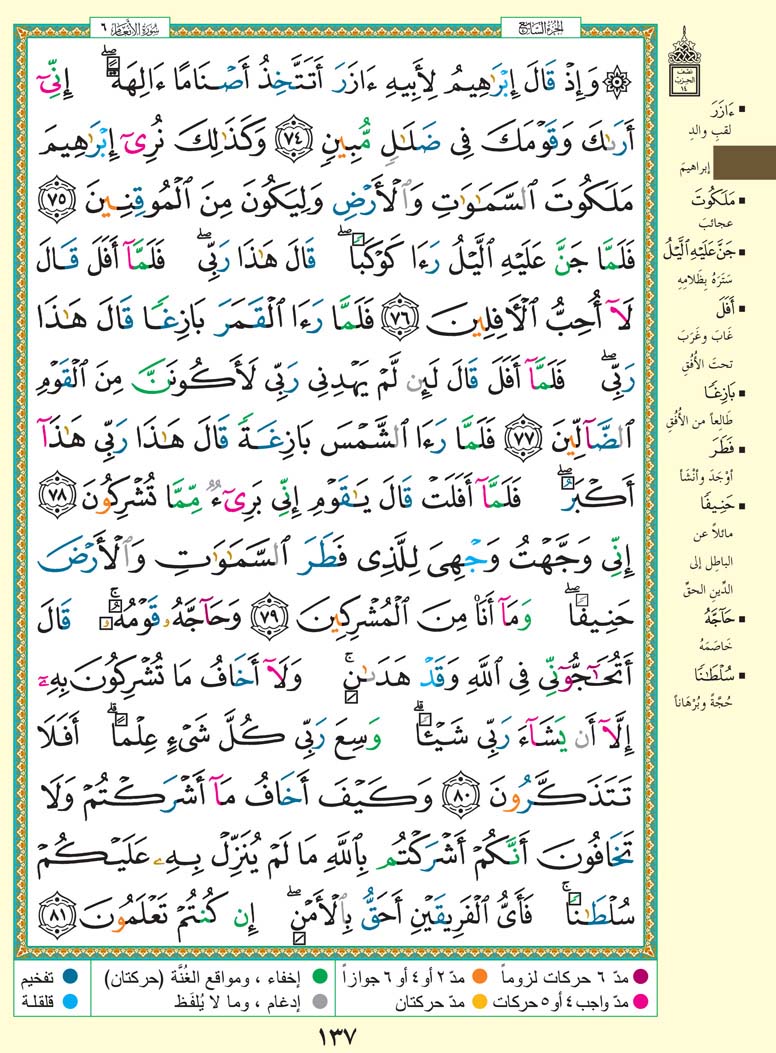 سُورَةُ الأَنْعَام ٦
الجُزْءُ السَّابِع
وَإِذْ قَالَ إِبْرَٰهِيمُ لِأَبِيهِ ءَازَرَ أَتَتَّخِذُ أَصْنَامًا ءَالِهَةً ۖ إِنِّىٓ
أَرَىٰكَ وَقَوْمَكَ فِى ضَلَـٰلٍ مُّبِينٍ ٧٤ وَكَذَٰلِكَ نُرِىٓ إِبْرَٰهِيمَ
مَلَكُوتَ السَّمَـٰوَٰتِ وَالْأَرْضِ وَلِيَكُونَ مِنَ الْمُوقِنِينَ ٧٥
فَلَمَّا جَنَّ عَلَيْهِ الَّيْلُ رَءَا كَوْكَبًا ۖ قَالَ هَـٰذَا رَبِّى ۖ فَلَمَّآ أَفَلَ قَالَ
لَآ أُحِبُّ الْـَٔافِلِينَ ٧٦ فَلَمَّا رَءَا الْقَمَرَ بَازِغًا قَالَ هَـٰذَا
رَبِّى ۖ فَلَمَّآ أَفَلَ قَالَ لَئِن لَّمْ يَهْدِنِى رَبِّى لَأَكُونَنَّ مِنَ الْقَوْمِ
الضَّآلِّينَ ٧٧ فَلَمَّا رَءَا الشَّمْسَ بَازِغَةً قَالَ هَـٰذَا رَبِّى هَـٰذَآ
أَكْبَرُ ۖ فَلَمَّآ أَفَلَتْ قَالَ يَـٰقَوْمِ إِنِّى بَرِىٓءٌ مِّمَّا تُشْرِكُونَ ٧٨
إِنِّى وَجَّهْتُ وَجْهِىَ لِلَّذِى فَطَرَ السَّمَـٰوَٰتِ وَالْأَرْضَ
حَنِيفًا ۖ وَمَآ أَنَا۠ مِنَ الْمُشْرِكِينَ ٧٩ وَحَآجَّهُۥ قَوْمُهُۥ ۚ قَالَ
أَتُحَـٰٓجُّوٓنِّى فِى اللَّهِ وَقَدْ هَدَىٰنِ ۚ وَلَآ أَخَافُ مَا تُشْرِكُونَ بِهِۦٓ
إِلَّآ أَن يَشَآءَ رَبِّى شَيْـًٔا ۗ وَسِعَ رَبِّى كُلَّ شَىْءٍ عِلْمًا ۗ أَفَلَا
تَتَذَكَّرُونَ ٨٠ وَكَيْفَ أَخَافُ مَآ أَشْرَكْتُمْ وَلَا
تَخَافُونَ أَنَّكُمْ أَشْرَكْتُم بِاللَّهِ مَا لَمْ يُنَزِّلْ بِهِۦ عَلَيْكُمْ
سُلْطَـٰنًا ۚ فَأَىُّ الْفَرِيقَيْنِ أَحَقُّ بِالْأَمْنِ ۖ إِن كُنتُمْ تَعْلَمُونَ ٨١
نصف
الحزب
١٤
ءَازَرَ
لقب والدِ
إبراهيمَ
مَلَكُوتَ
عجائبَ
جَنَّ عَلَيْهِ الَّيْلُ
سَتَرَهُ بِظَلامِهِ
أَفَلَ
غَابَ وغَرَبَ
تحتَ الأُفُقِ
بَازِغًا
طَالِعاً من الأُفُقِ
فَطَرَ
أوْجَدَ وأنْشَأ
حَنِيفًا
مائلاً عن
الباطِلِ إلى
الدِّينِ الحقِّ
حَآجَّهُ
خَاصَمَهُ
سُلْطَـٰنًا
حُجَّةً وبُرْهَاناً
مدّ ٦ حركات لزوماً
مدّ ٢ أو ٤ أو ٦ جوازاً
إخفاء ، ومواقع الغُنَّة (حركتان)
تفخيم
مدّ واجب ٤ أو ٥ حركات
مدّ حركتان
إدغام ، وما لا يُلفَظ
قلقلة
١٣٧